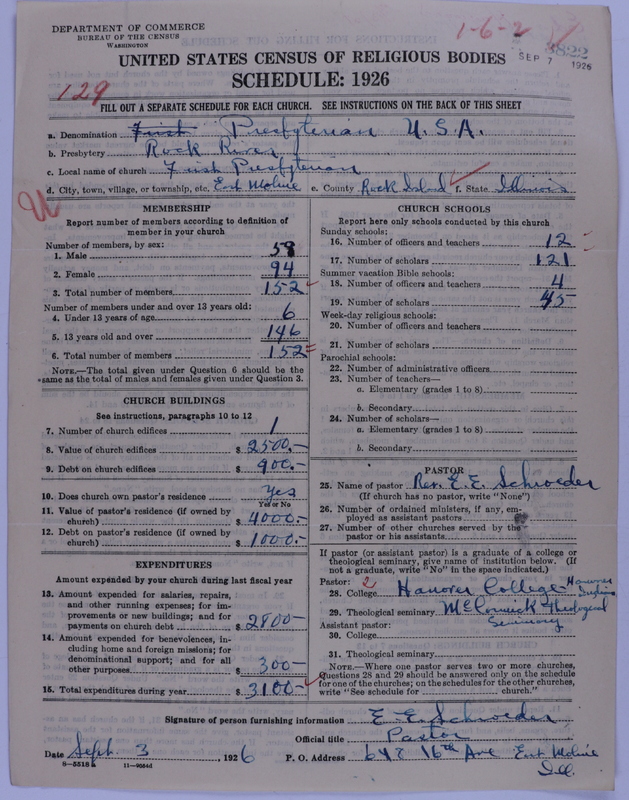 DEPARTMENT OF COMMERCE
BUREAU OF THE CENSUS
WASHINGTON
1-6-2
3822
SEP 7 1926
UNITED STATES CENSUS OF RELIGIOUS BODIES
SCHEDULE: 1926
129
FILL OUT A SEPARATE SCHEDULE FOR EACH CHURCH. SEE INSTRUCTIONS ON THE BACK OF THIS SHEET
a. Denomination First Presbyterian U.S.A.
b. Presbytery Rock River
c. Local name of church First Presbyterian
d. City, town, village, or township, etc. East Moline e. County Rock Island f. State Illinois
MEMBERSHIP
Report number of members according to definition of
member in your church
Number of members, by sex:
1. Male 58
2. Female 94
3. Total number of members 152
Number of members under and over 13 years old:
4. Under 13 years of age 6
5. 13 years old and over 146
6. Total number of members 152
NOTE.—The total given under Question 6 should be
same as the total of males and females given under Question 3.
CHURCH BUILDINGS
See instructions, paragraphs 10 to 12
7. Number of church edifices 1
8. Value of church edifices $ 2500.-
9. Debt on church edifices $ 900.-
10. Does church own pastor's residence Yes
Yes or No
11. Value of pastor's residence (if owned by
church) $ 4000.-
12. Debt on pastor's residence (if owned by
church) $ 1000.-
EXPENDITURES
Amount expended by your church during last fiscal year
13. Amount expended for salaries, repairs,
and other running expenses; for im-
provements or new buildings; and for
payments on church debt $ 2800-
14. Amount expended for benevolences, in-
cluding home and foreign missions; for
denominational support; and for all
other purposes $ 300-
15. Total expenditures during year $ 3100-
CHURCH SCHOOLS
Report here only schools conducted by this church
Sunday schools:
16. Number of officers and teachers 12
17. Number of scholars 121
Summer vacation Bible schools:
18. Number of officers and teachers 4
19. Number of scholars 45
Week-day religious schools:
20. Number of officers and teachers
21. Number of scholars
Parochial schools:
22. Number of administrative officers
23. Number of teachers—
a. Elementary (grades 1 to 8)
b. Secondary
24. Number of scholars—
a. Elementary (grades 1 to 8)
b. Secondary
PASTOR
25. Name of pastor Rev. E. E. Schroeder
(If church has no pastor, write "None")
26. Number of ordained ministers, if any, em-
ployed as assistant pastors
27. Number of other churches served by the
pastor or his assistants
If pastor (or assistant pastor) is a graduate of a college or
theological seminary, give name of institution below. (If
not a graduate, write "No" in the space indicated.)
Pastor: 2
28. College Hanover College Hanover Indiana
29. Theological seminary McCormick Theological
Seminary
Assistant pastor:
30. College
31. Theological seminary
NOTE.—Where one pastor serves two or more churches,
Questions 28 and 29 should be answered only on the schedule
for one of the churches; on the schedules for the other churches,
write "See schedule for church."
Signature of person furnishing information E. E. Schroeder
Official title Pastor
Date Sept. 3, 1926 P. O. Address 648 16th Ave East Moline
Ill.
8-5518a 11-9054d